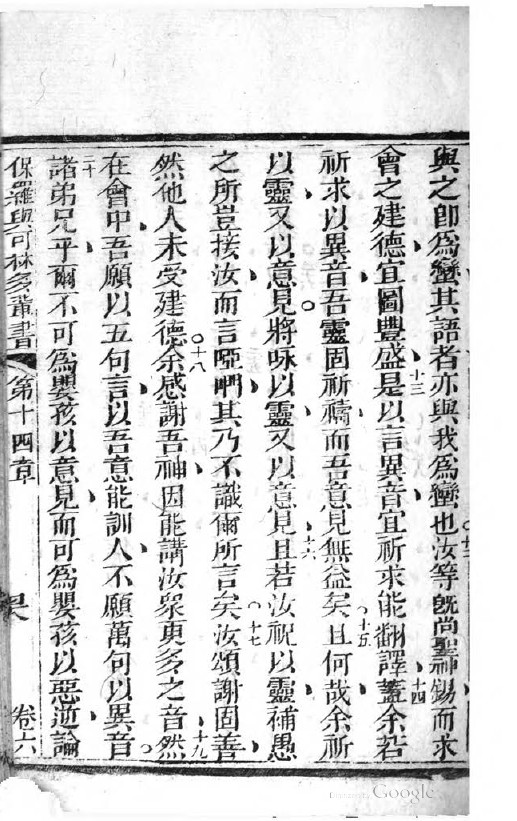 與之卽為蠻其語者亦與我為蠻也汝等旣尚聖神錫而求
會之建德宜圖豐盛是以言異音宜祈求能翻譯蓋余若
十三
十四
祈求以異音吾靈固祈禱而吾意見無益矣且何哉余祈
十五
以靈又以意見將咏以靈又以意見且若汝祝以靈補愚
十六
之所豈接汝而言啞門其乃不識爾所言矣汝頌謝固善
十七
然他人未受建德余感謝吾神因能講汝眾更多之音然
十八
十九
在會中吾願以五句言以吾意能訓人不願萬句以異音
諸弟兄乎爾不可為嬰孩以意見而可為嬰孩以惡逆論
二十
保羅與可林多輩書 第十四章 卷六
Digitized by Google